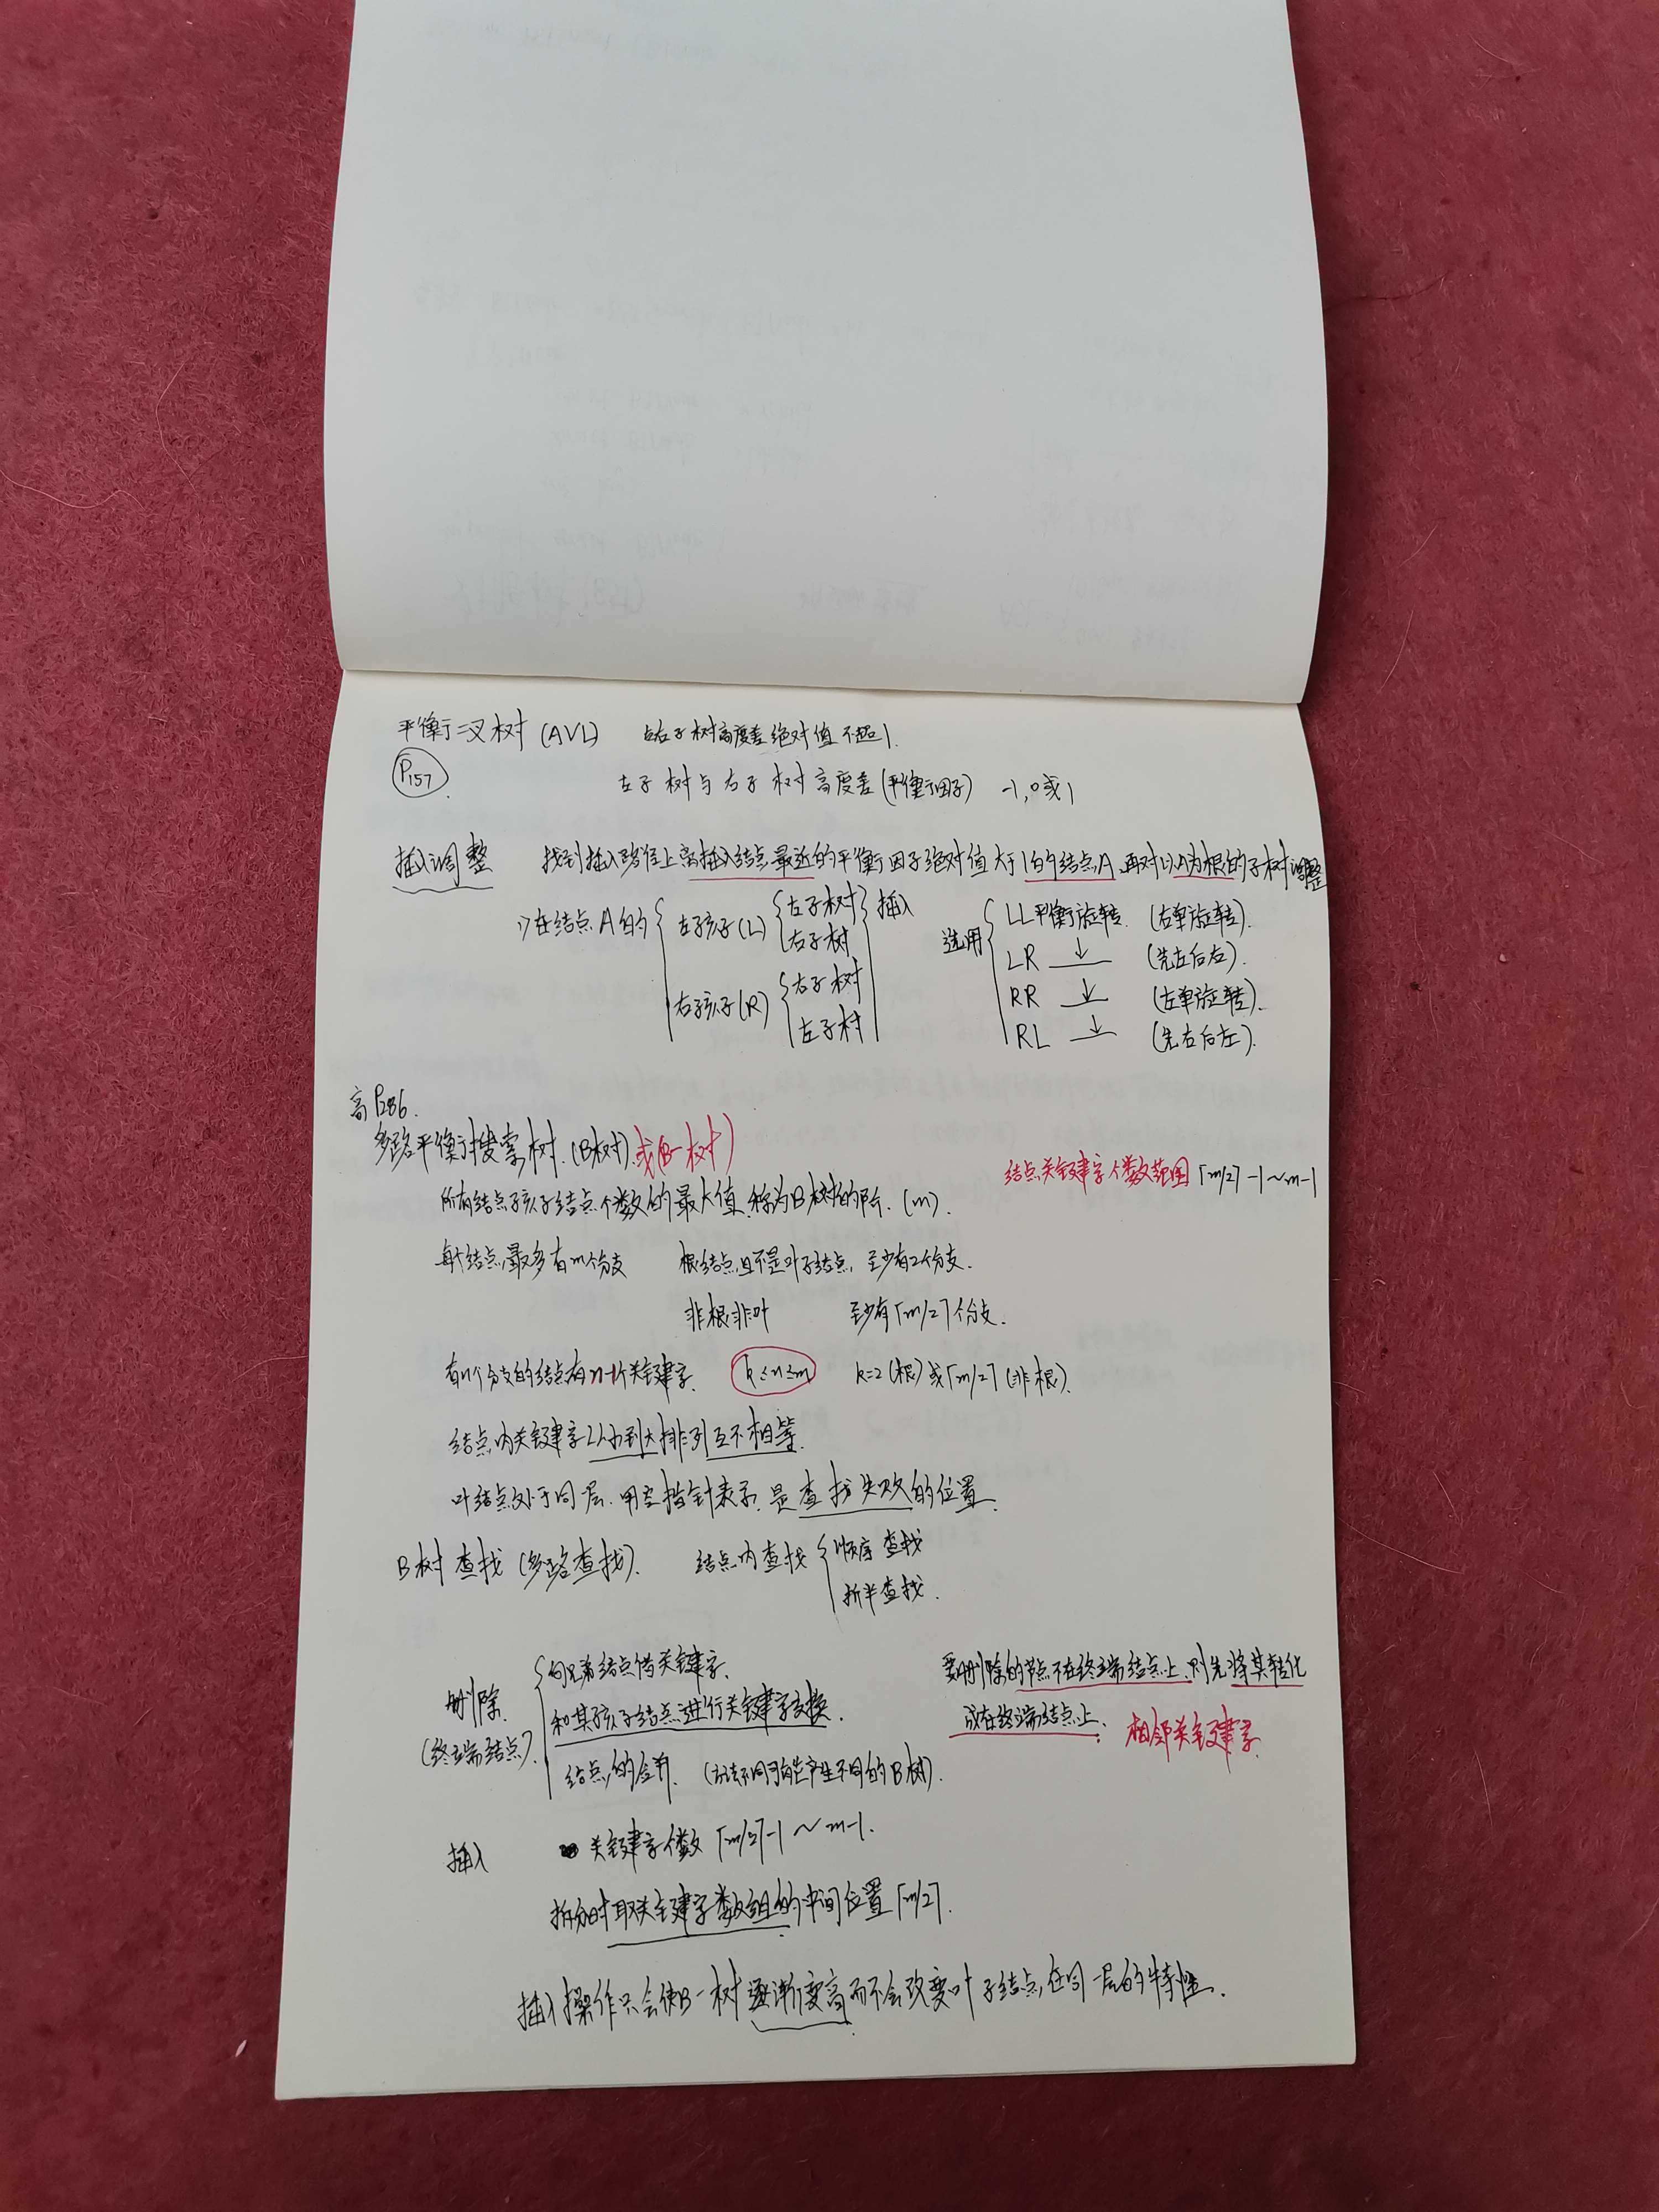 平衡二叉树 (AVL) 左右子树高度差绝对值不超1.
P157
左子树与右子树高度差(平衡因子) -1,0或1
插入调整 找到插入路径上离插入结点最近的平衡因子绝对值大于1的结点A,再对以A为根的子树调整
1)在结点A的 左孩子(L) 左子树 插入 选用 LL平衡旋转 (右单旋转).
右子树 LR ↓ (先左后右).
右孩子(R) 右子树 RR ↓ (左单旋转).
左子树 RL ↓ (先右后左).
高P286.
多路平衡搜索树.(B树).或(B-树)
结点关键字个数范围⌈m/2⌉-1~m-1
所有结点孩子结点个数的最大值,称为B树的阶.(m).
每个结点最多有m个分支 根结点且不是叶子结点,至少有2个分支.
非根非叶 至少有⌈m/2⌉个分支.
有n个分支的结点有n-1个关键字. k≤n≤m k=2(根)或⌈m/2⌉(非根).
结点内关键字从小到大排列互不相等.
叶结点处于同一层.用空指针表示.是查找失败的位置.
B树查找(多路查找). 结点内查找 顺序查找
折半查找.
删除 (终端结点). 向兄弟结点借关键字.
和其孩子结点进行关键字交换.
结点的合并. (方法不同可能产生不同的B树).
要删除的节点不在终端结点上,则先将其转化
成在终端结点上. 相邻关键字.
插入 关键字个数⌈m/2⌉-1~m-1.
拆分时取关键字数组的中间位置⌈m/2⌉.
插入操作只会使B-树逐渐变高而不会改变叶子结点在同一层的特性.